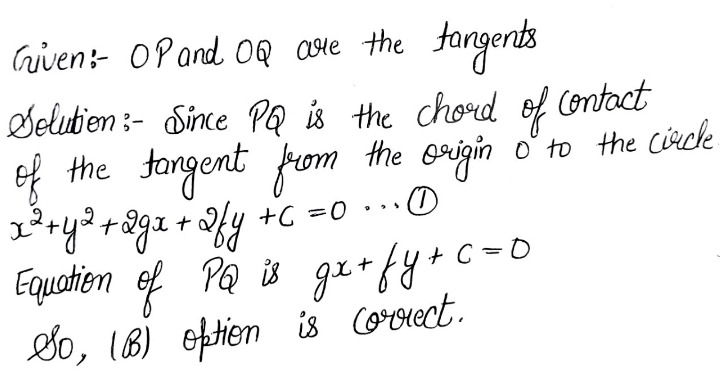 Given:- OP and OQ are the tangents
Solution:- Since PQ is the chord of contact
of the tangent from the origin O to the circle
x²+y²+2gx+2fy+C=0 ...①
Equation of PQ is gx+fy+C=0
So, (B) option is correct.